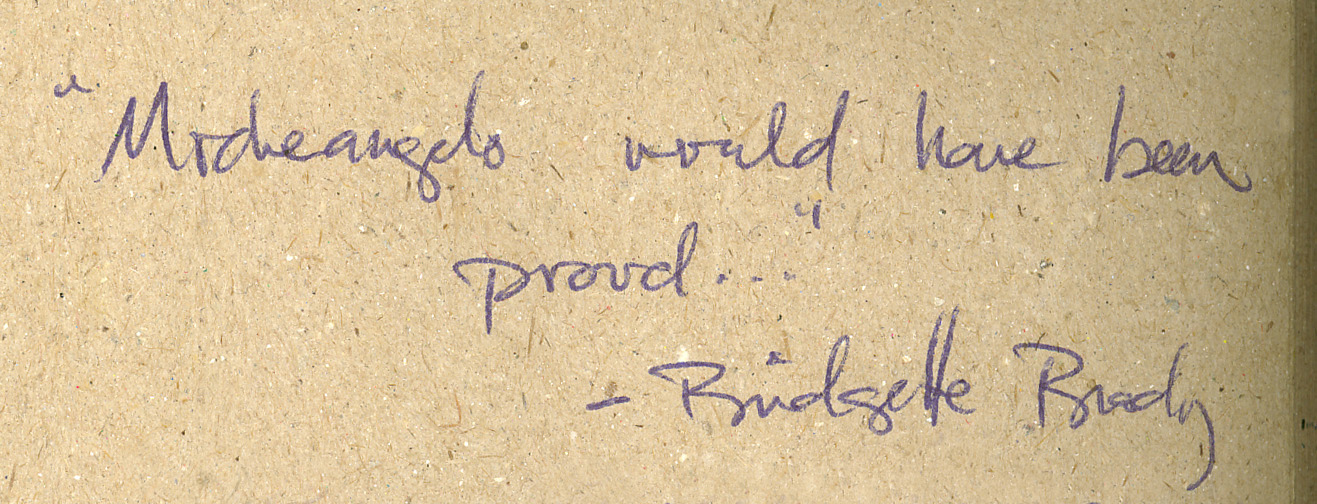 "Micheangelo would have been
proud..."
- Bridgette Brady